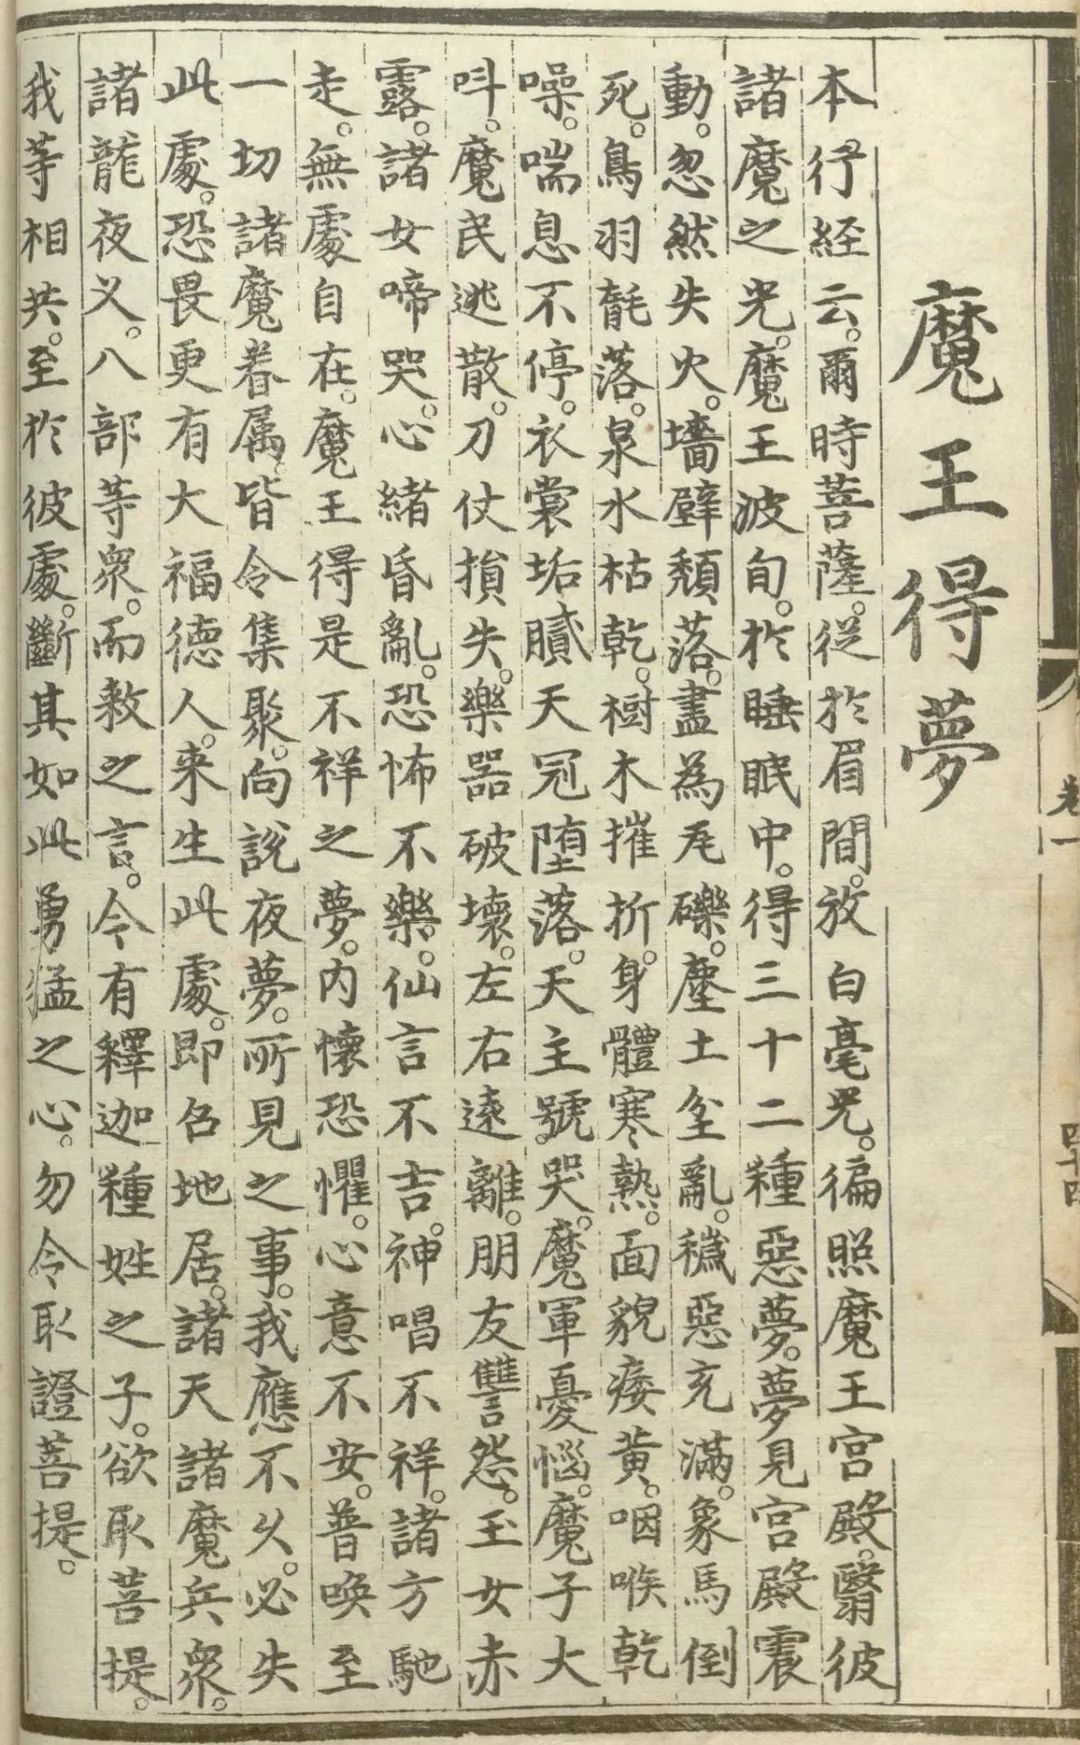 魔王得夢
本行経云。爾時菩薩。從於眉間。放白毫光。徧照魔王宮殿。翳彼
諸魔之光。魔王波旬。於睡眠中。得三十二種惡夢。夢見宮殿震
動。忽然失火。墻壁頽落。盡為瓦礫。塵土坌亂。穢惡充滿。象馬倒
死。鳥羽毻落。泉水枯乾。樹木摧折。身體寒熱。面貌痿黃。咽喉乾
噪。喘息不停。衣裳垢膩天冠墮落。天主號。哭。魔軍憂惱。魔子大
呌。魔民逃散。刀仗損失。樂器破壞。左右遠離。朋友讐怨。玉女赤
露。諸女啼哭。心緒昏亂。恐怖不樂。仙言不吉。神唱不祥。諸方馳
走。無處自在。魔王得是不祥之夢。內懷恐懼。心意不安。普喚至
一切諸魔眷属。皆令集聚。向說夜夢。所見之事。我應不久。必失
此處。恐畏更有大福德人。来生此處。即名地居。諸天諸魔兵衆。
諸龍夜义。八部等衆。而敕之言。今有釋迦種姓之子。欲取菩提。
我等相共。至於彼處。斷其如此勇猛之心。勿令取證菩提。
卷一
四十四